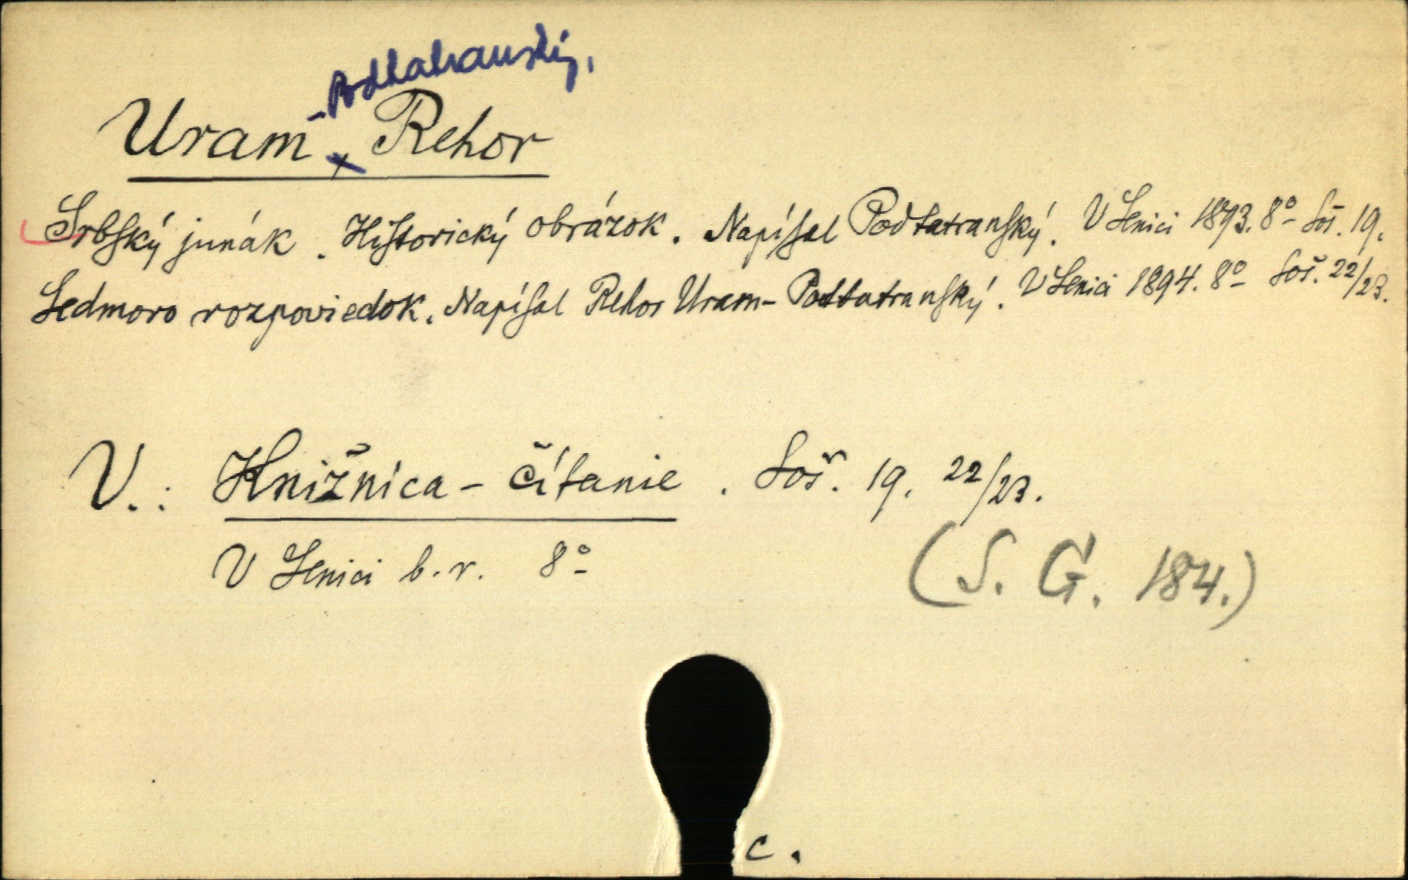 Uram -Podtatranský, Rehor
Srbský junák. Historický obrázok. Napísal Podtatranský. V Senici 1893. 8° Soš. 19.
Sedmoro rozpoviedok. Napísal Rehor Uram-Podtatranský. V Senici 1894. 8° Soš. 22/23.
V.: Knižnica - čítanie. Soš. 19, 22/23.
V Senici b.r. 8°
(S. G. 184.)
c.